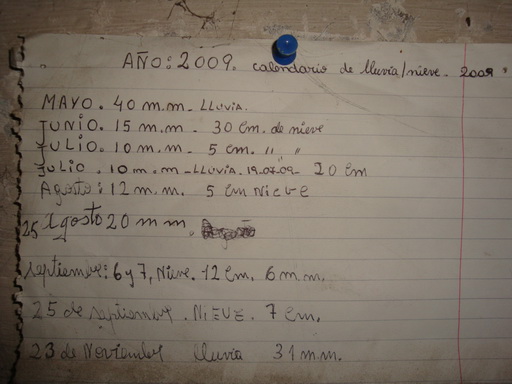 AÑO: 2009. calendario de lluvia/nieve - 2009
MAYO. 40 m.m - LLUVIA.
JUNIO. 15 m.m - 30 Cm. de nieve
JULIO. 10 m.m - 5 cm. " "
JULIO. 10 m.m - LLUVIA. 19.07.09 - 20 Cm
Agosto: 12 m.m. 5 Cm NIEVE
25 Agosto 20 mm.
septiembre: 6 y 7, Nieve. 12 Cm. 6 m.m.
25 de septiembre. NIEVE. 7 Cm.
23 de Noviembre lluvia 31 m.m.